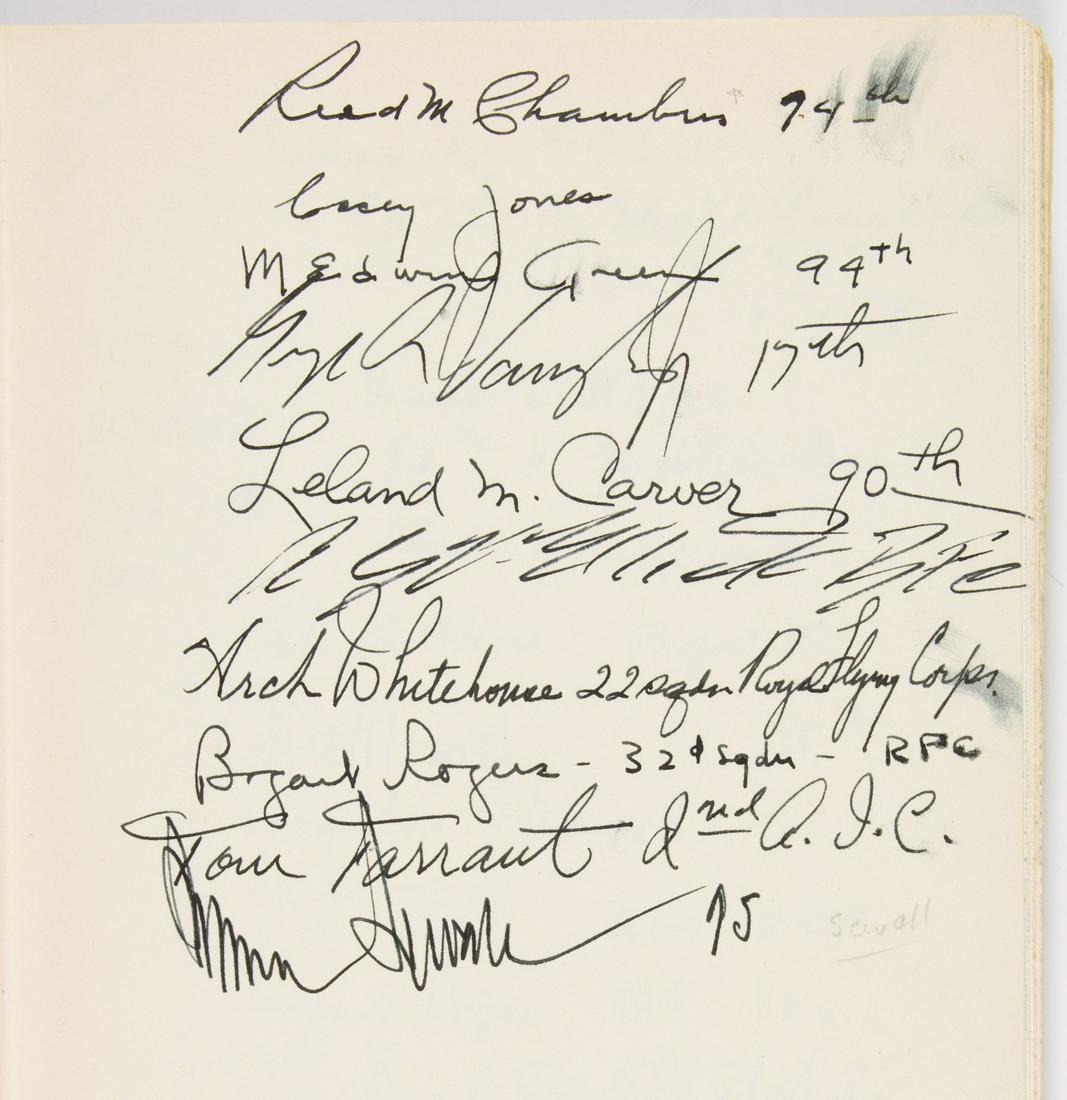 Reed M Chambers 94th
Casey Jones
M Edwin Green 99th
Geo A Vaughn Jr 17th
Leland M. Carver 90th
DFC
Arch Whitehouse 22 sqdn Royal Flying Corps.
Bogart Rogers - 32d sqdn - RFC
Tom Tarrant 2nd A.I.C.
95 Sewall